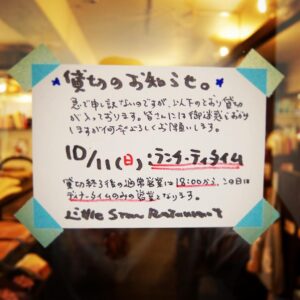 ★貸切のお知らせ。★
急で申し訳ないのですが、以下のとおり貸切
が入っております。皆さんには御迷惑をおかけ
しますが何卒よろしくお願いします。
10/11(日):ランチ・ティタイム
貸切終了後の通常営業は18:00から、この日は
ディナータイムのみの営業となります。
Little Star Restaurant